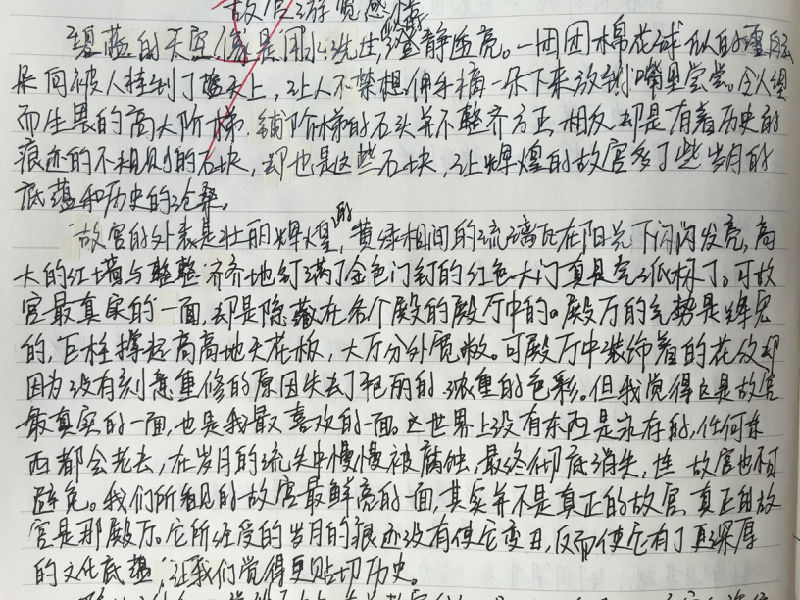 故宫游览感慨
碧蓝的天空像是用水洗过,澄静透亮。一团团棉花球似的云
朵同被人挂到了蓝天上,让人不禁想伸手摘一朵下来放到嘴里尝尝。令人望
而生畏的高大阶梯,铺阶梯的石头并不整齐方正,相反,却是有着历史的
痕迹的不规则的石块,却也是这些石块,让辉煌的故宫多了些岁月的
底蕴和历史的沧桑。
故宫的外表是壮丽辉煌的,黄绿相间的琉璃瓦在阳光下闪闪发亮,高
大的红墙与整整齐齐地钉满了金色门钉的红色大门真是气派极了。可故
宫最真实的一面,却是隐藏在各个殿的殿厅中的。殿厅的气势是
的,巨柱撑起高高地天花板,大厅分外宽敞。可殿厅中装饰着的花纹却
因为没有刻意重修的原因失去了艳丽的浓重的色彩。但我觉得这是故宫
最真实的一面,也是我最喜欢的一面。这世界上没有东西是永存的,任何东
西都会老去,在岁月的流失中慢慢被腐蚀,最终彻底消失,连故宫也不可
避免。我们所看见的故宫最鲜亮的一面,其实并不是真正的故宫,真正的故
宫是那殿厅。它所经受的岁月的痕迹没有使它变丑,反而使它有了更深厚
的文化底蕴,让我们觉得更贴切历史。